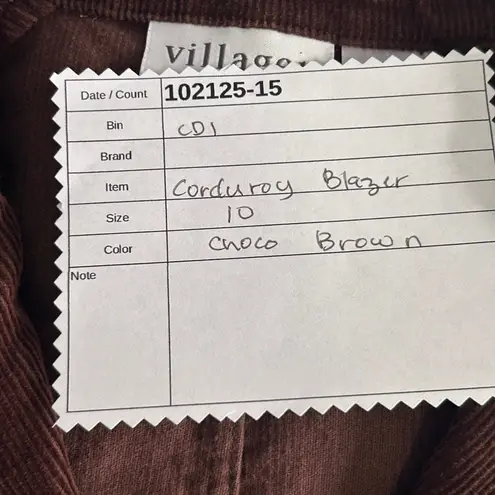 Village
Date / Count 102125-15
Bin CD1
Brand
Item Corduroy Blazer
Size 10
Color Choco Brown
Note